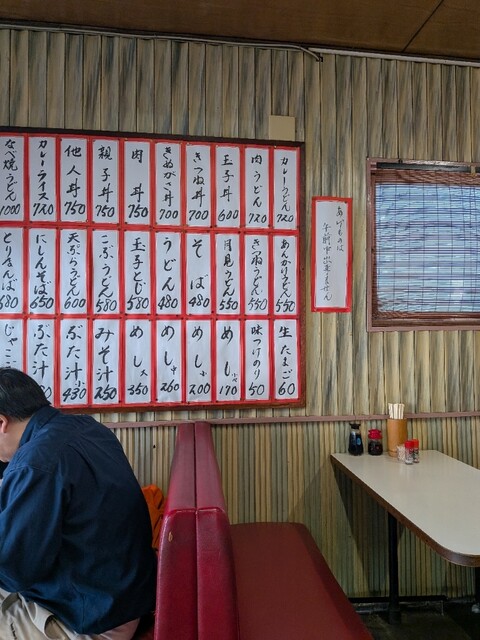 あげものは
午前中出来ません
カレーうどん 720
肉うどん 720
玉子丼 600
きつね丼 700
きぬがさ丼 700
肉丼 750
親子丼 750
他人丼 750
カレーライス 720
なべ焼うどん 1000
あんかけうどん 550
きつねうどん 550
月見うどん 550
そば 480
うどん 480
玉子とじ 580
こぶうどん 580
天ぷらうどん 600
にしんそば 650
とりなんば 680
生たまご 60
味つけのり 50
めし 170
めし小 200
めし中 260
めし大 350
みそ汁 250
ぶた汁小 430
ぶた汁
じゃこ